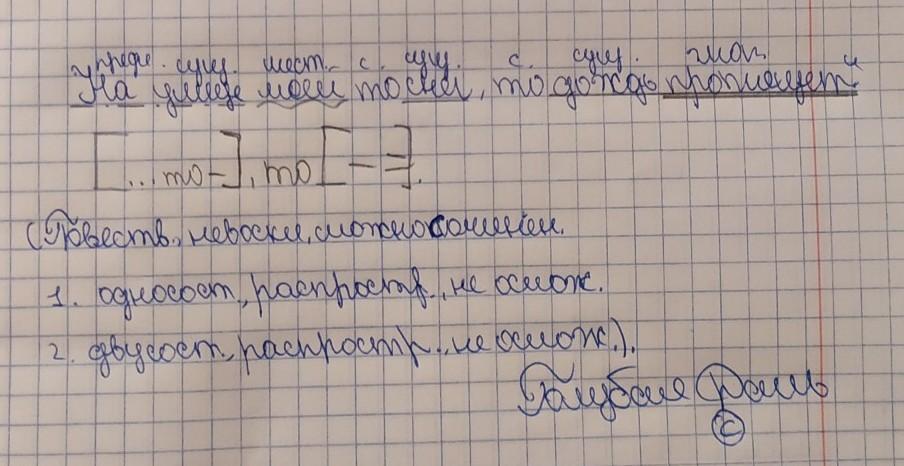 предл. сущ. мест. с. сущ. с. сущ. глаг.
На улице моей то снег, то дождь пролил
[...то-], то [- =].
(Повеств., невоскл., сложносочинён.
1. односост., распростр., не ослож.
2. двусост., распростр., не ослож.).
Голубая Рашь
©